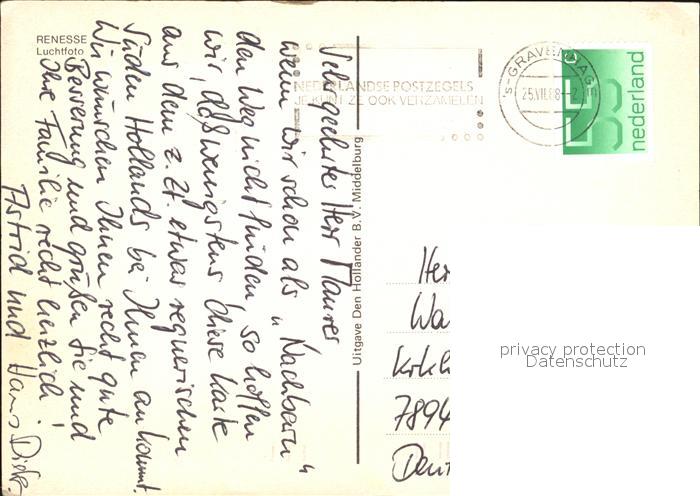 RENESSE
Luchtfoto
Sehr geehrter Herr Maurer
wenn wir schon als "Nachbarn"
den Weg nicht finden, so hoffen
wir, daß wenigstens diese Karte
aus dem z. Zt. etwas regnerischen
Süden Hollands bei Ihnen ankommt.
Wir wünschen Ihnen recht gute
Besserung und grüßen Sie und
Ihre Familie recht herzlich!
Astrid und Hans Dirk.
Uitgave Den Hollander B.V. Middelburg
NEDERLANDSE POSTZEGELS
JE KUNT ZE OOK VERZAMELEN
's-GRAVENHAGE
25.VII.88
nederland
Her
Wa
7894
privacy protection
Datenschutz